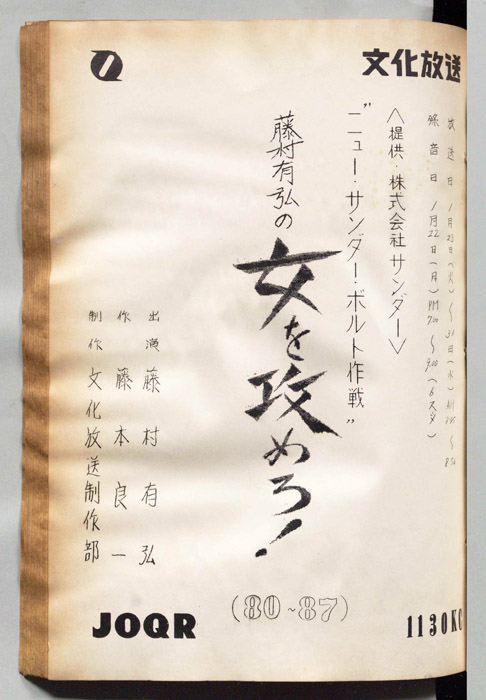 文化放送
放送日 1月23日(火)〜31日(水)
録音日 1月22日(月)PM7:00〜9:00(6スタ)
〈提供・株式会社サンダー〉
"ニュー・サンダー・ボルト作戦"
藤村有弘の女を攻めろ!
(80~87)
出演 藤村有弘
作 藤本良一
制作 文化放送制作部
JOQR
1130KC